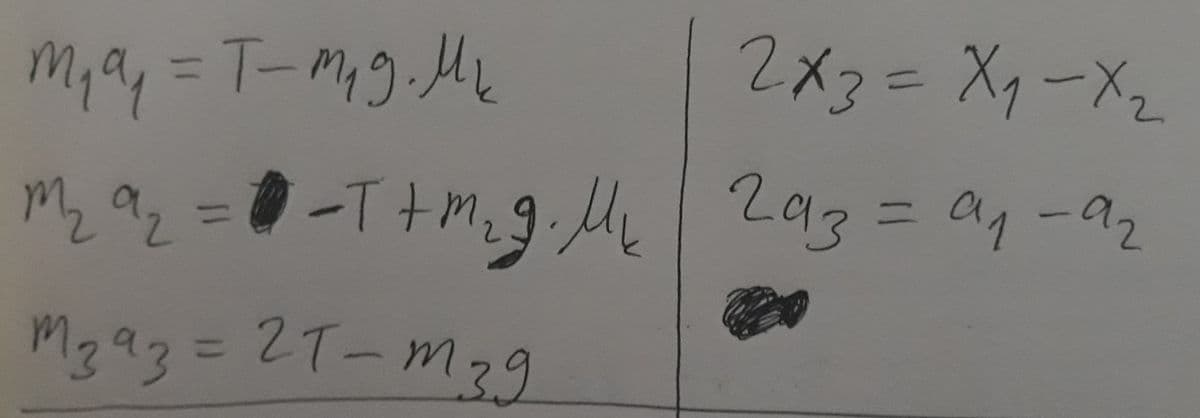 m₁a₁ = T - m₁g·μₖ
m₂a₂ = -T + m₂g·μₖ
m₃a₃ = 2T - m₃g
2x₃ = x₁ - x₂
2a₃ = a₁ - a₂